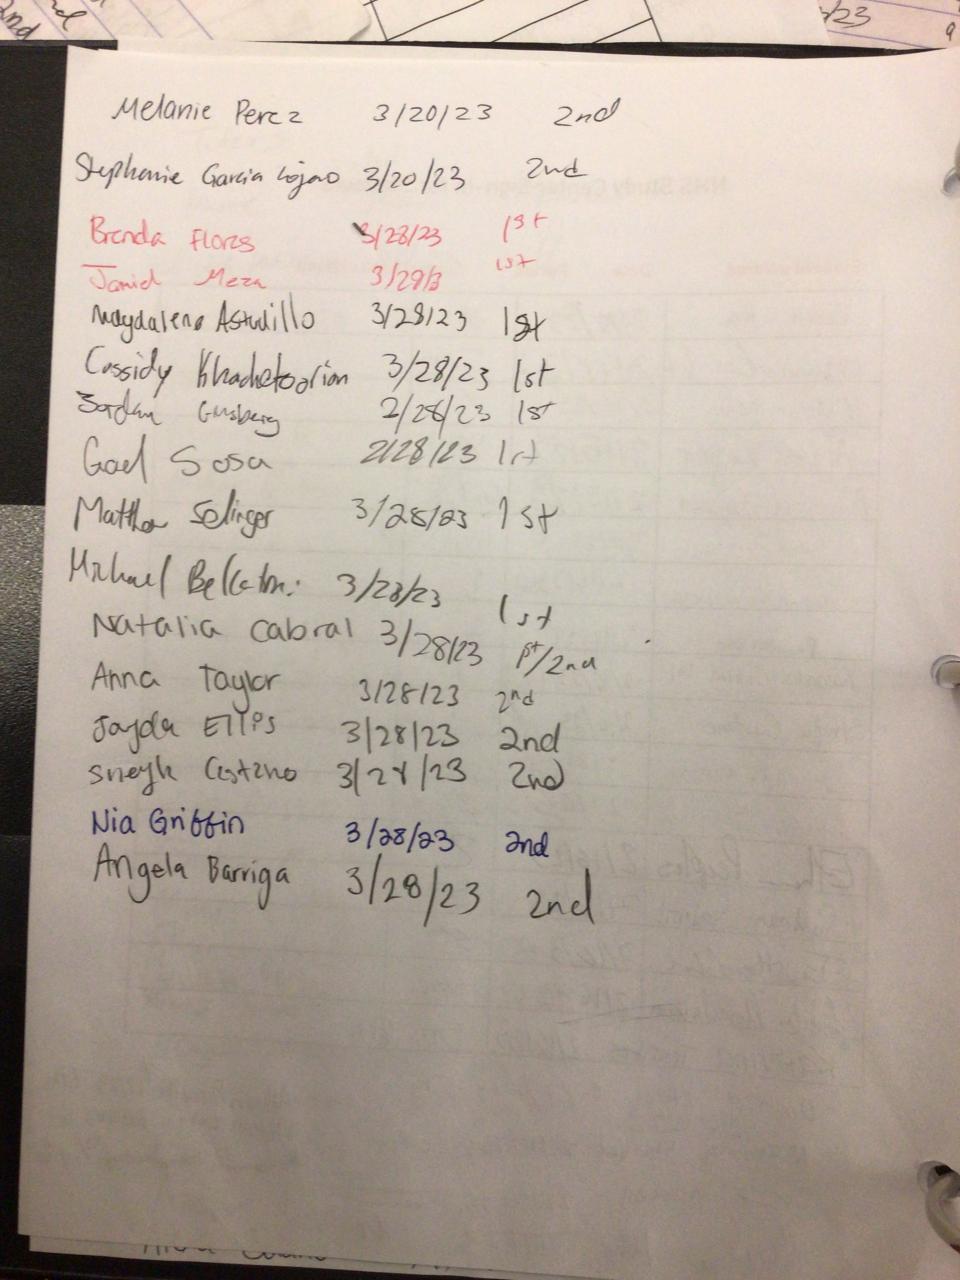 2nd
/23
Melanie Perez 3/20/23 2nd
Stephanie Garcia Lojano 3/20/23 2nd
Brenda Flores 3/28/23 1st
Meza 3/29/3 1st
Magdalena Astudillo 3/28/23 1st
Cassidy Khachatoorian 3/28/23 1st
Jordan Ginsberg 2/28/23 1st
Gael Sosa 2/28/23 1st
Matthew Selinger 3/28/23 1st
Michael 3/28/23 1st
Natalia Cabral 3/28/23 1st/2nd
Anna Taylor 3/28/23 2nd
Jayda 3/28/23 2nd
3/28/23 2nd
Nia Griffin 3/28/23 2nd
Angela Barriga 3/28/23 2nd